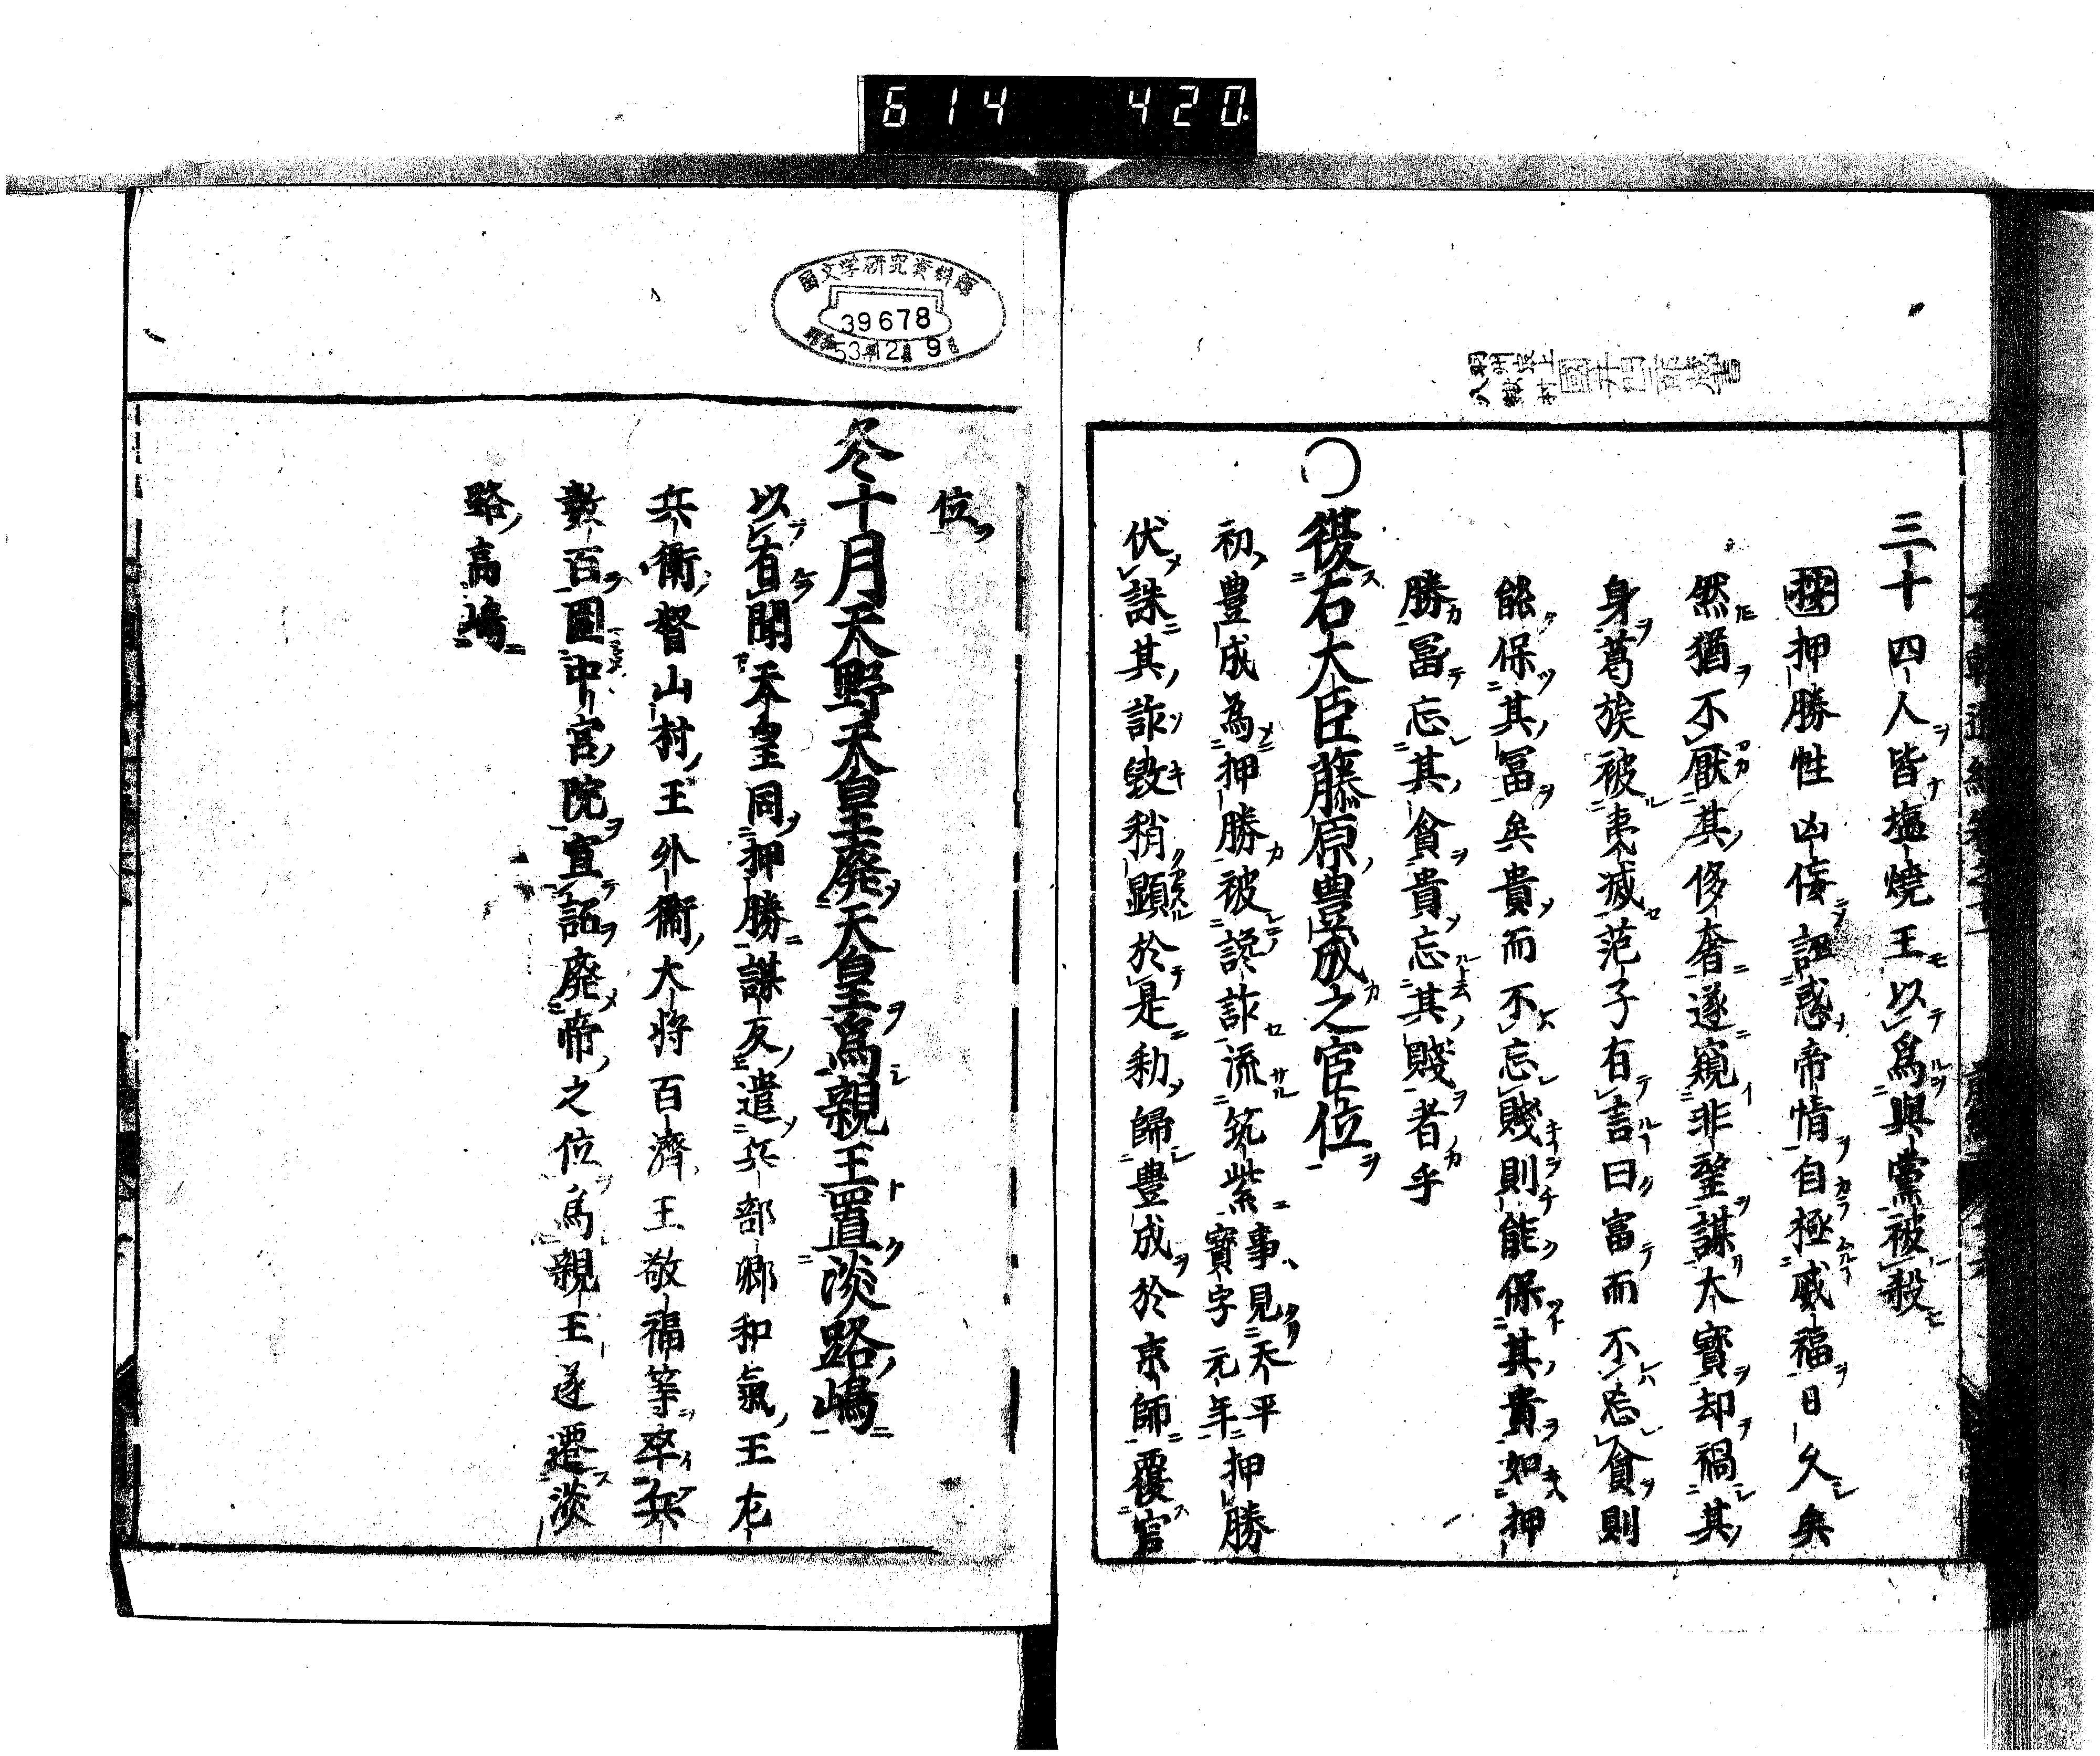 614 420
三十四人皆塩焼王以為與黨被殺
按押勝性凶倿誣惑帝情自極威福日久矣
然猶不厭其侈奢遂窺非望謀大寳却禍其
身蓦族被夷滅范子有言曰富而不忘貧則
能保其冨矣貴而不忘賤則能保其貴如押
勝冨忘其貧貴忘其賤者乎
〇復右大臣藤原豊成之官位
初豊成為押勝被讒詐流筑紫事見天平寳字元年押勝
伏誅其詐毀稍顕於是勅歸豊成於京師覆官
國文学研究資料館
39678
53.12.9
位
冬十月天野天皇廃天皇爲親王置淡路嶋
以有聞天皇同押勝謀反遣兵部卿和氣王左
兵衛督山村王外衛大将百濟王敬福等卒兵
數百圍中宮院宣詔廃帝之位爲親王遂遷淡
路高嶋